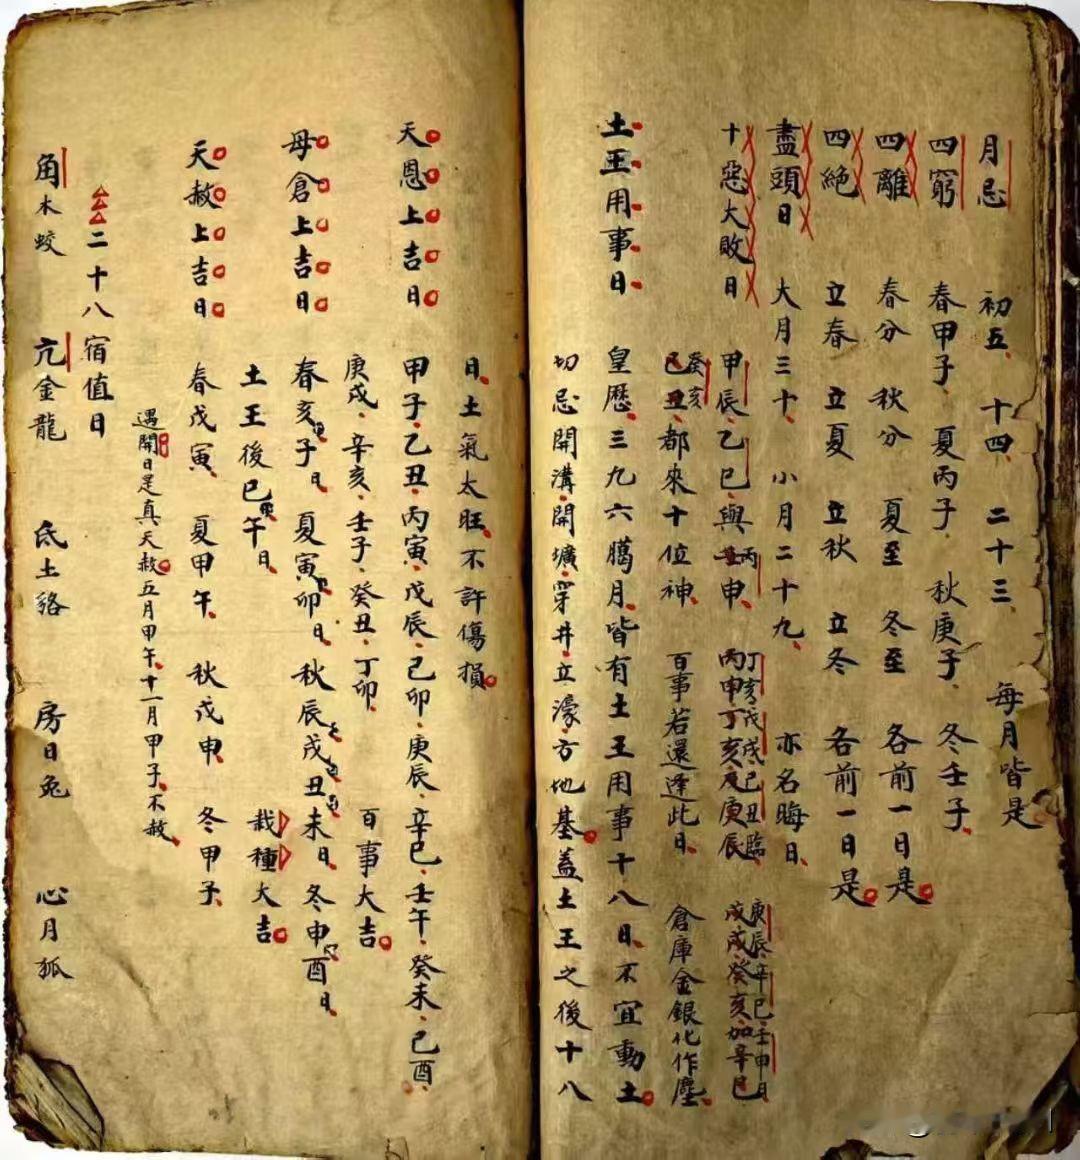 月忌 初五、十四、二十三、每月皆是
四窮 春甲子、夏丙子、秋庚子、冬壬子
四離 春分 秋分 夏至 冬至 各前一日是
四絕 立春 立夏 立秋 立冬 各前一日是
盡頭日 大月三十、小月二十九、亦名晦日
十惡大敗日 甲辰、乙巳、與 丙申、丙申丁亥及庚辰 戊戌、癸亥、加辛巳
丁亥戊戌己丑臨 庚辰辛巳壬申月
癸亥
己丑、都來十位神、百事若還逢此日、倉庫金銀化作塵
土王用事日 皇歷、三九六臈月、皆有土王用事十八日、不宜動土
切忌開溝、開壙、穿井、立濠、方地基、蓋土王之後十八
日、土氣太旺、不許傷損
天恩上吉日 甲子、乙丑、丙寅、戊辰、己卯、庚辰、辛巳、壬午、癸未、己酉
庚戌、辛亥、壬子、癸丑、丁卯、百事大吉
母倉上吉日 春亥日子日、夏寅日卯日、秋辰戌丑未日、冬申酉日
土王後巳午日、栽種大吉
天赦上吉日 春戊寅、夏甲午、秋戊申、冬甲子
遇開日是真天赦、五月甲午、十一月甲子、不赦
二十八宿值日
角木蛟 亢金龍 氐土貉 房日兔 心月狐